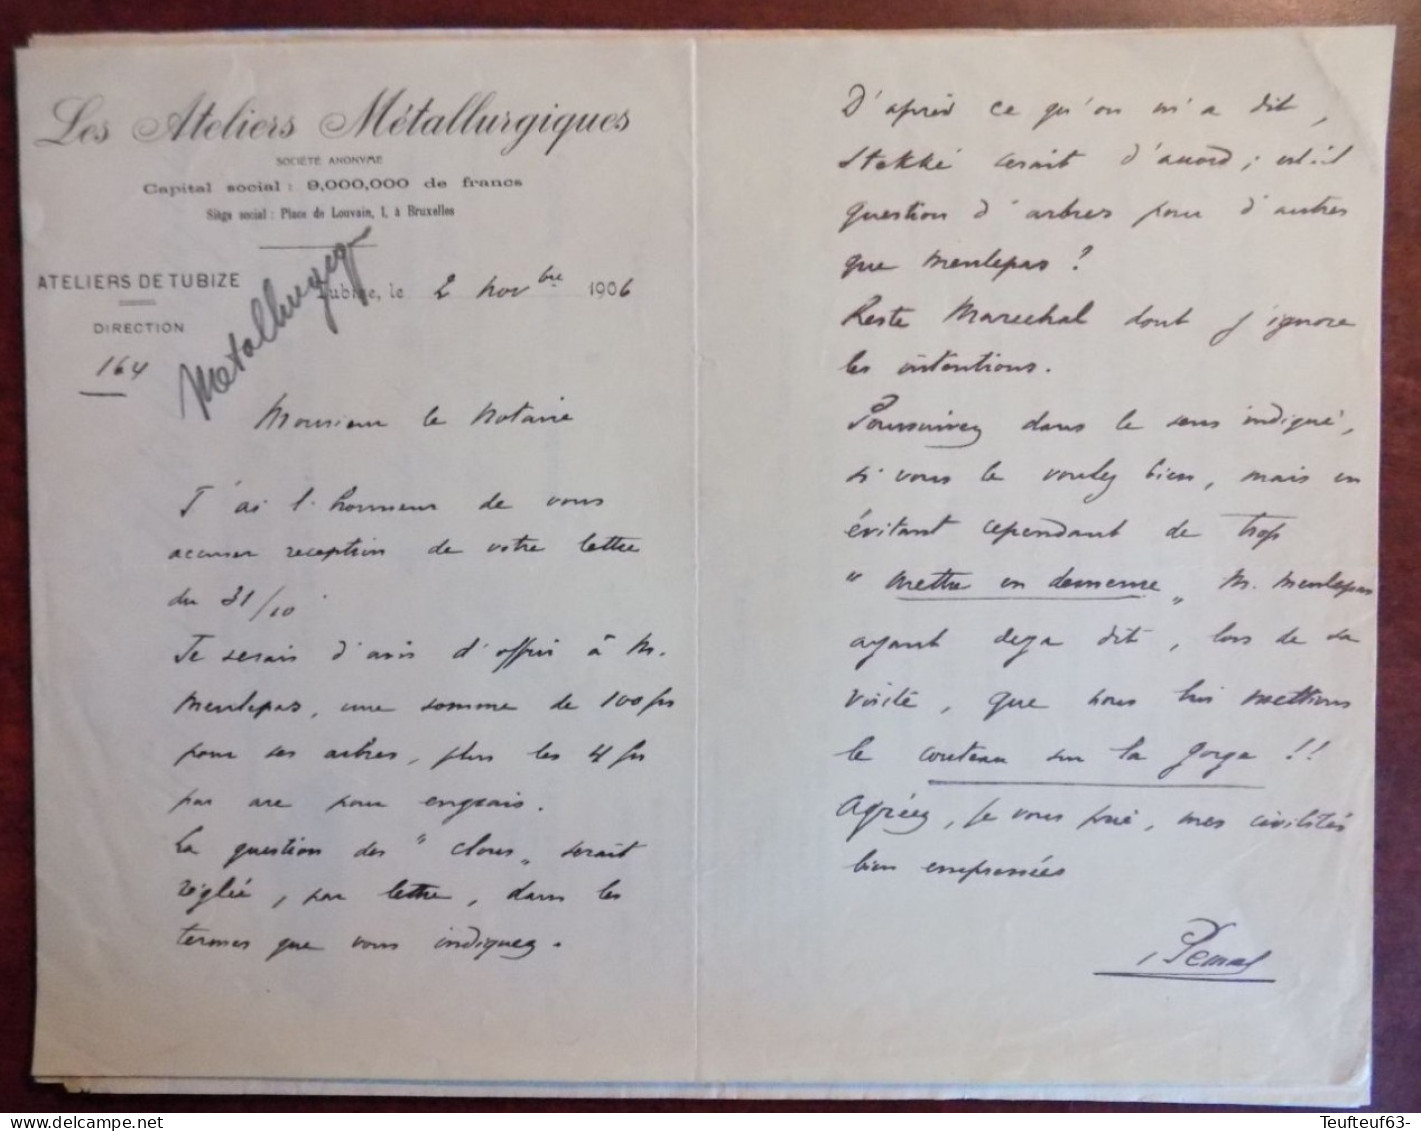 Les Ateliers Métallurgiques
SOCIÉTÉ ANONYME
Capital social : 9,000,000 de francs
Siège social : Place de Louvain, 1, à Bruxelles
ATELIERS DE TUBIZE
Tubize, le 2 novbre 1906
DIRECTION
164
Metallurgiq
Monsieur le Notaire
J'ai l'honneur de vous
accuser reception de votre lettre
du 31/10
Je serais d'avis d'offrir à M.
Meulepas, une somme de 100 frs
pour ses arbres, plus les 4 frs
par are pour engrais.
La question des "clous" serait
réglée, par lettre, dans les
termes que vous indiquez.
D'après ce qu'on m'a dit,
Stekké serait d'accord ; est-il
question d'arbres pour d'autres
que Meulepas ?
Reste Marechal dont j'ignore
les intentions.
Poursuivez dans le sens indiqué,
si vous le voulez bien, mais en
évitant cependant de trop
"mettre en demeure" M. Meulepas
ayant deja dit, lors de sa
visite, que nous lui mettions
le couteau sur la gorge !!
Agréez, je vous prie, mes civilités
bien empressées
Teufteuf63-